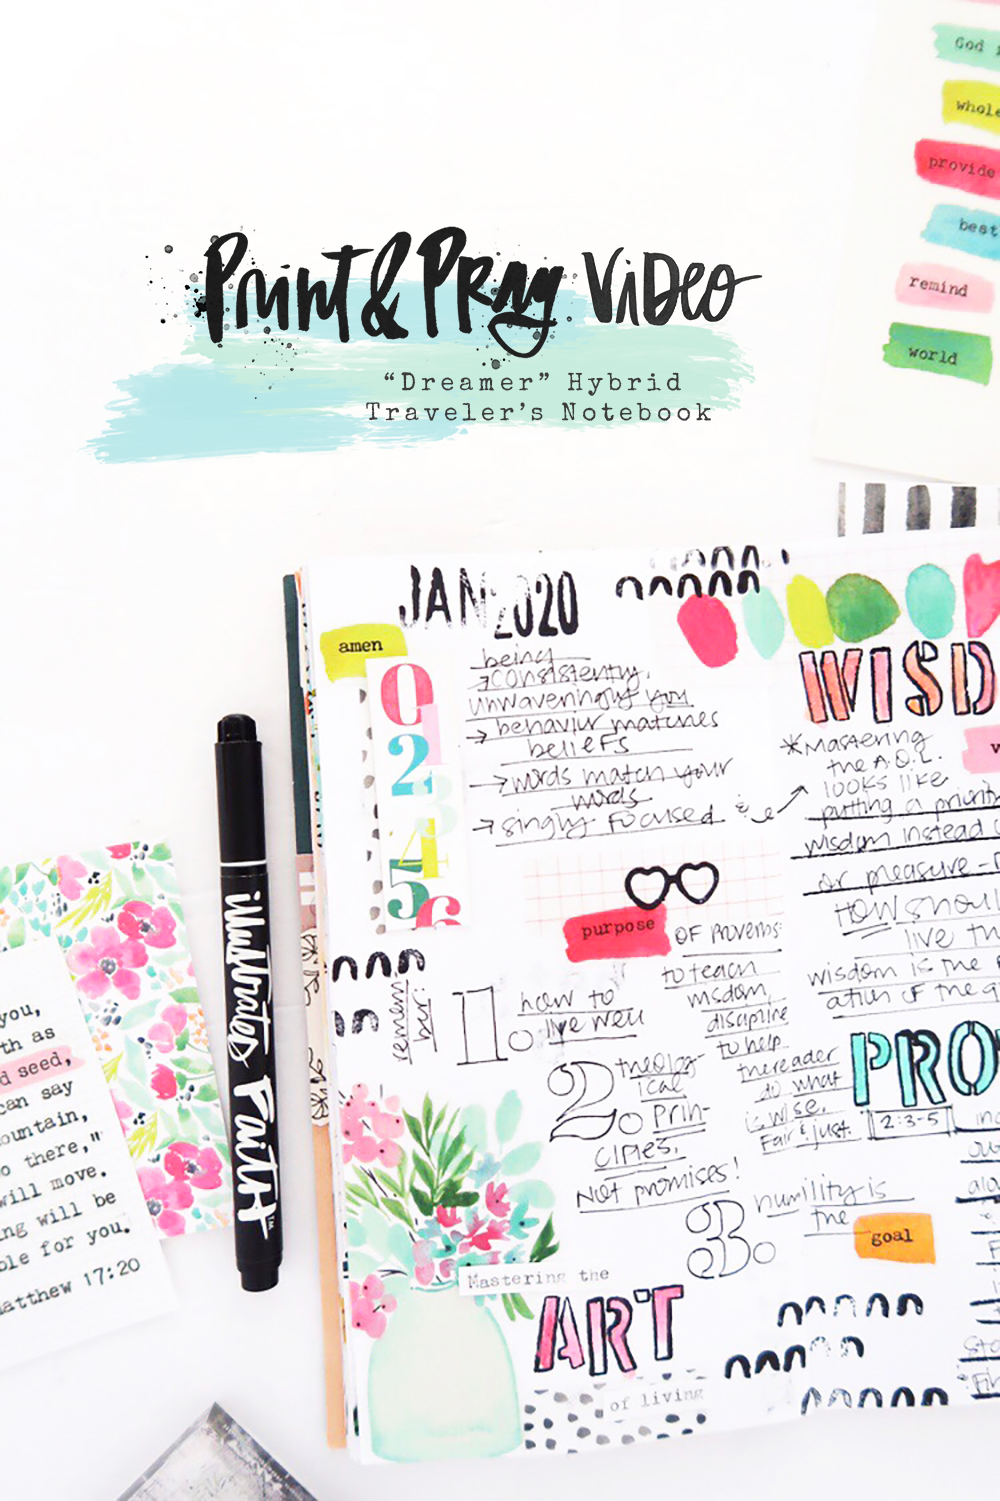 God i
whole
provide
best
remind
world
Print & Pray Video
“Dreamer” Hybrid
Traveler’s Notebook
JAN 2020
amen
0
2
3
4
5
6
being
→consistently,
unwaveringly you
→ behavior matches
beliefs
→ words match your
words
→ singly focused &
purpose
OF Proverbs:
to teach
wisdom,
discipline
to help
the reader
do what
is wise.
Fair & just.
remem
ber:
1. how to
live well
2. theolog-
ical
prin-
ciples,
Not promises!
3. humility is
the
goal
Mastering the
ART
of living
WISD
*Mastering
the A.O.L.
looks like
putting a priority
wisdom instead o
or pleasure -
HOW shoul
live th
wisdom is the
ation of the
PRO
2:3-5
illustrated Faith™
you,
th as
d seed,
can say
ountain,
o there,"
will move.
ing will be
ble for you.
atthew 17:20